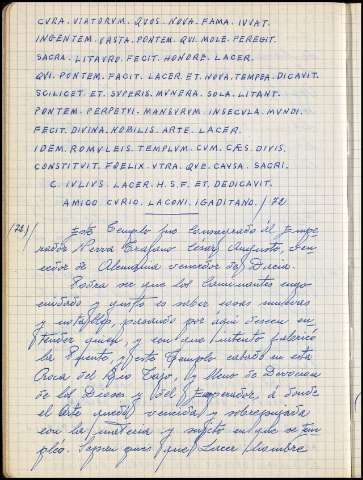 CVRA. VIATORVM. QVOS. NOVA. FAMA. IVVAT.
INGENTEM. VASTA. PONTEM. QVI. MOLE. PEREGIT.
SACRA. LITATVRO. FECIT. HONORE. LACER.
QVI. PONTEM. FACIT. LACER. ET. NOVA. TEMPEA. DICAVIT.
SCILICET. ET. SVPERIS. MVNERA. SOLA. LITANT.
PONTEM. PERPETVI. MANSVRVM. INSECVLA. MVNDI.
FECIT. DIVINA. NOBILIS. ARTE. LACER.
IDEM. ROMVLEIS. TEMPLVM. CVM. CÆS. DIVIS.
CONSTITVIT. FŒLIX. VTRA. QVE. CAVSA. SACRI.
C. IVLIVS. LACER. H.S.F. ET. DEDICAVIT.
AMICO. CVRIO. LACONI. IGADITANO. / 72
(72)/ Este Templo fue consagrado al Empe
rador Nerva Trajano César Augusto, Ven-
cedor de Alemania vencedor de Dacia.
Podra ser que los caminantes
cuidado y gusto es saber cosas nuevas
y pasando por aqui deseen en
tender quien, y con que intento fabricó
la Puente, y este Templo cabado en esta
Roca del Rio Tajo, lleno de Devocion
de los Dioses y del Emperador, a donde
el Arte queda vencida y sobrepujada
con la materia y sujeto en que se em
pleó. Sepan pues que Lacer Hombre